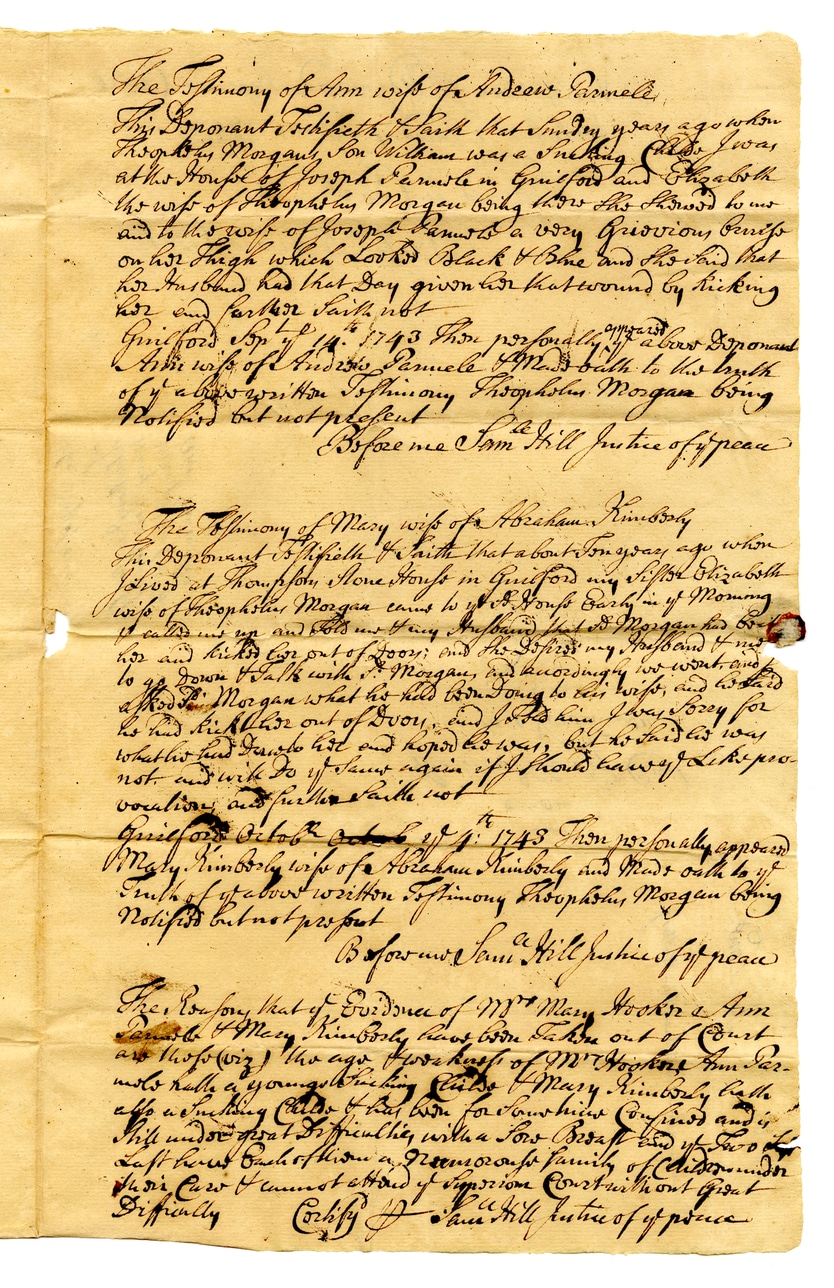 The Testimony of Ann wife of Andrew Parmele
This Deponant Testifieth & Saith that Sundry years ago when
Theophelus Morgans Son William was a Sucking Childe I was
at the House of Joseph Parmele in Guilford and Elizabeth
the wife of Theophelus Morgan being there She Shewed to me
and to the wife of Joseph Parmele a very Grievious bruise
on her Thigh which Looked Black & Blue and She Said that
her Husband had that Day given her that wound by Kicking
her and further Saith not
Guilford Sept ye 14th 1743 Then personally appeared ye above Deponant
Ann wife of Andrew Parmele & Made oath to the truth
of ye above written Testimony Theophelus Morgan being
Notified but not present
Before me Samll Hill Justice of ye peace
The Testimony of Mary wife of Abraham Kimberly
This Deponant Testifieth & Saith that about Ten years ago when
I Lived at Thompsons Stone House in Guilford my Sister Elizabeth
wife of Theophelus Morgan came to ye Sd House Early in ye Morning
& called me up and Told me & my Husband that Sd Morgan had
her and kicked her out of Doors; and She Desired my Husband & me
to go down & Talk with Sd Morgan, and accordingly we went and
asked Sd Morgan what he had been Doing to his wife, and he Said
he had kickt her out of Doors, and I Told him I was Sorry for
what he had Done to her and hoped he was, but he Said he was
not and will Do ye Same again if I Should have ye Like pro-
vocation, and further Saith not
Guilford Octobr ye 4th 1743 Then personally appeared
Mary Kimberly wife of Abraham Kimberly and Made oath to ye
Truth of ye above written Testimony Theophelus Morgan being
Notified but not present
Before me Samll Hill Justice of ye peace
The Reasons that ye Evidence of Mrs Mary Hooker & Ann
Parmele & Mary Kimberly have been Taken out of Court
are these (viz) the age & weakness of Mrs Hooker, Ann Par-
mele hath a young Sucking Childe & Mary Kimberly hath
also a Sucking Childe & has been for Sometime Confined and is
Still under great Difficulties with a Sore Breast and ye Two
Last have Each of them a Numorouse family of Children under
their Care & cannot attend ye Superiour Court without Great
Difficulty Certify'd pr Samll Hill Justice of ye peace